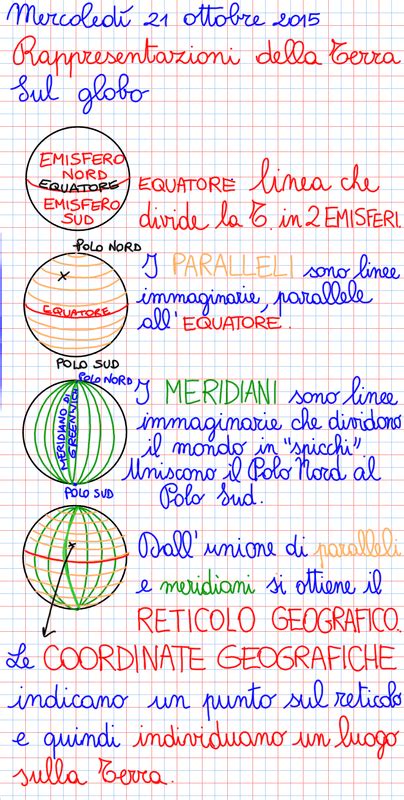 Mercoledí 21 ottobre 2015
Rappresentazioni della Terra
Sul globo
EMISFERO
NORD
EQUATORE
EMISFERO
SUD
EQUATORE linea che
divide la T. in 2 EMISFERI.
POLO NORD
EQUATORE
POLO SUD
I PARALLELI sono linee
immaginarie, parallele
all'EQUATORE.
POLO NORD
MERIDIANO DI
GREENWICH
POLO SUD
I MERIDIANI sono linee
immaginarie che dividono
il mondo in "spicchi".
Uniscono il Polo Nord al
Polo Sud.
Dall'unione di paralleli
e meridiani si ottiene il
RETICOLO GEOGRAFICO.
Le COORDINATE GEOGRAFICHE
indicano un punto sul reticolo
e quindi individuano un luogo
sulla Terra.